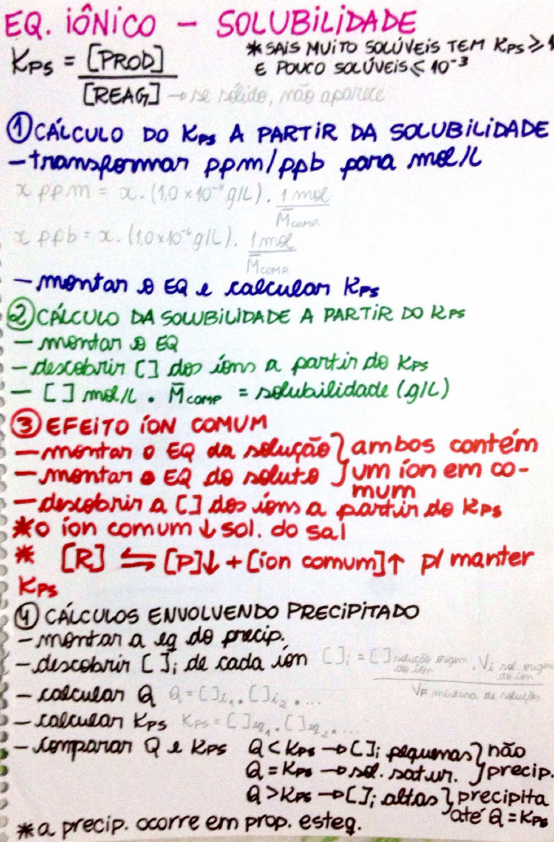 EQ. IÔNICO - SOLUBILIDADE
KPS = [PROD]
[REAG] → se sólido, não aparece
* SAIS MUITO SOLÚVEIS TEM KPS ≥ 1
E POUCO SOLÚVEIS ≤ 10⁻³
① CÁLCULO DO KPS A PARTIR DA SOLUBILIDADE
- transformar ppm/ppb para mol/L
x ppm = x. (1,0 x 10⁻³ g/L). 1 mol
M̅COMP.
x ppb = x. (1,0 x 10⁻⁶ g/L). 1 mol
M̅COMP.
- montar o EQ e calcular KPS
② CÁLCULO DA SOLUBILIDADE A PARTIR DO KPS
- montar o EQ
- descobrir [ ] dos íons a partir do KPS
- [ ] mol/L . M̅COMP = solubilidade (g/L)
③ EFEITO ÍON COMUM
- montar o EQ da solução } ambos contém
- montar o EQ do soluto } um íon em co-
mum
- descobrir a [ ] dos íons a partir do KPS
* o íon comum ↓ sol. do sal
* [R] ⇆ [P]↓ + [íon comum]↑ p/ manter
KPS
④ CÁLCULOS ENVOLVENDO PRECIPITADO
- montar a eq do precip.
- descobrir [ ]i de cada íon [ ]i = [ ] solução origem do íon . Vi sol. origem do íon
VF mistura de soluções
- calcular Q Q = [ ]i₁ . [ ]i₂ . ...
- calcular KPS KPS = [ ]eq₁ . [ ]eq₂ . ...
- comparar Q e KPS Q < KPS → [ ]i pequenas } não
Q = KPS → sol. satur. } precip.
Q > KPS → [ ]i altas } precipita
até Q = KPS
* a precip. ocorre em prop. esteq.